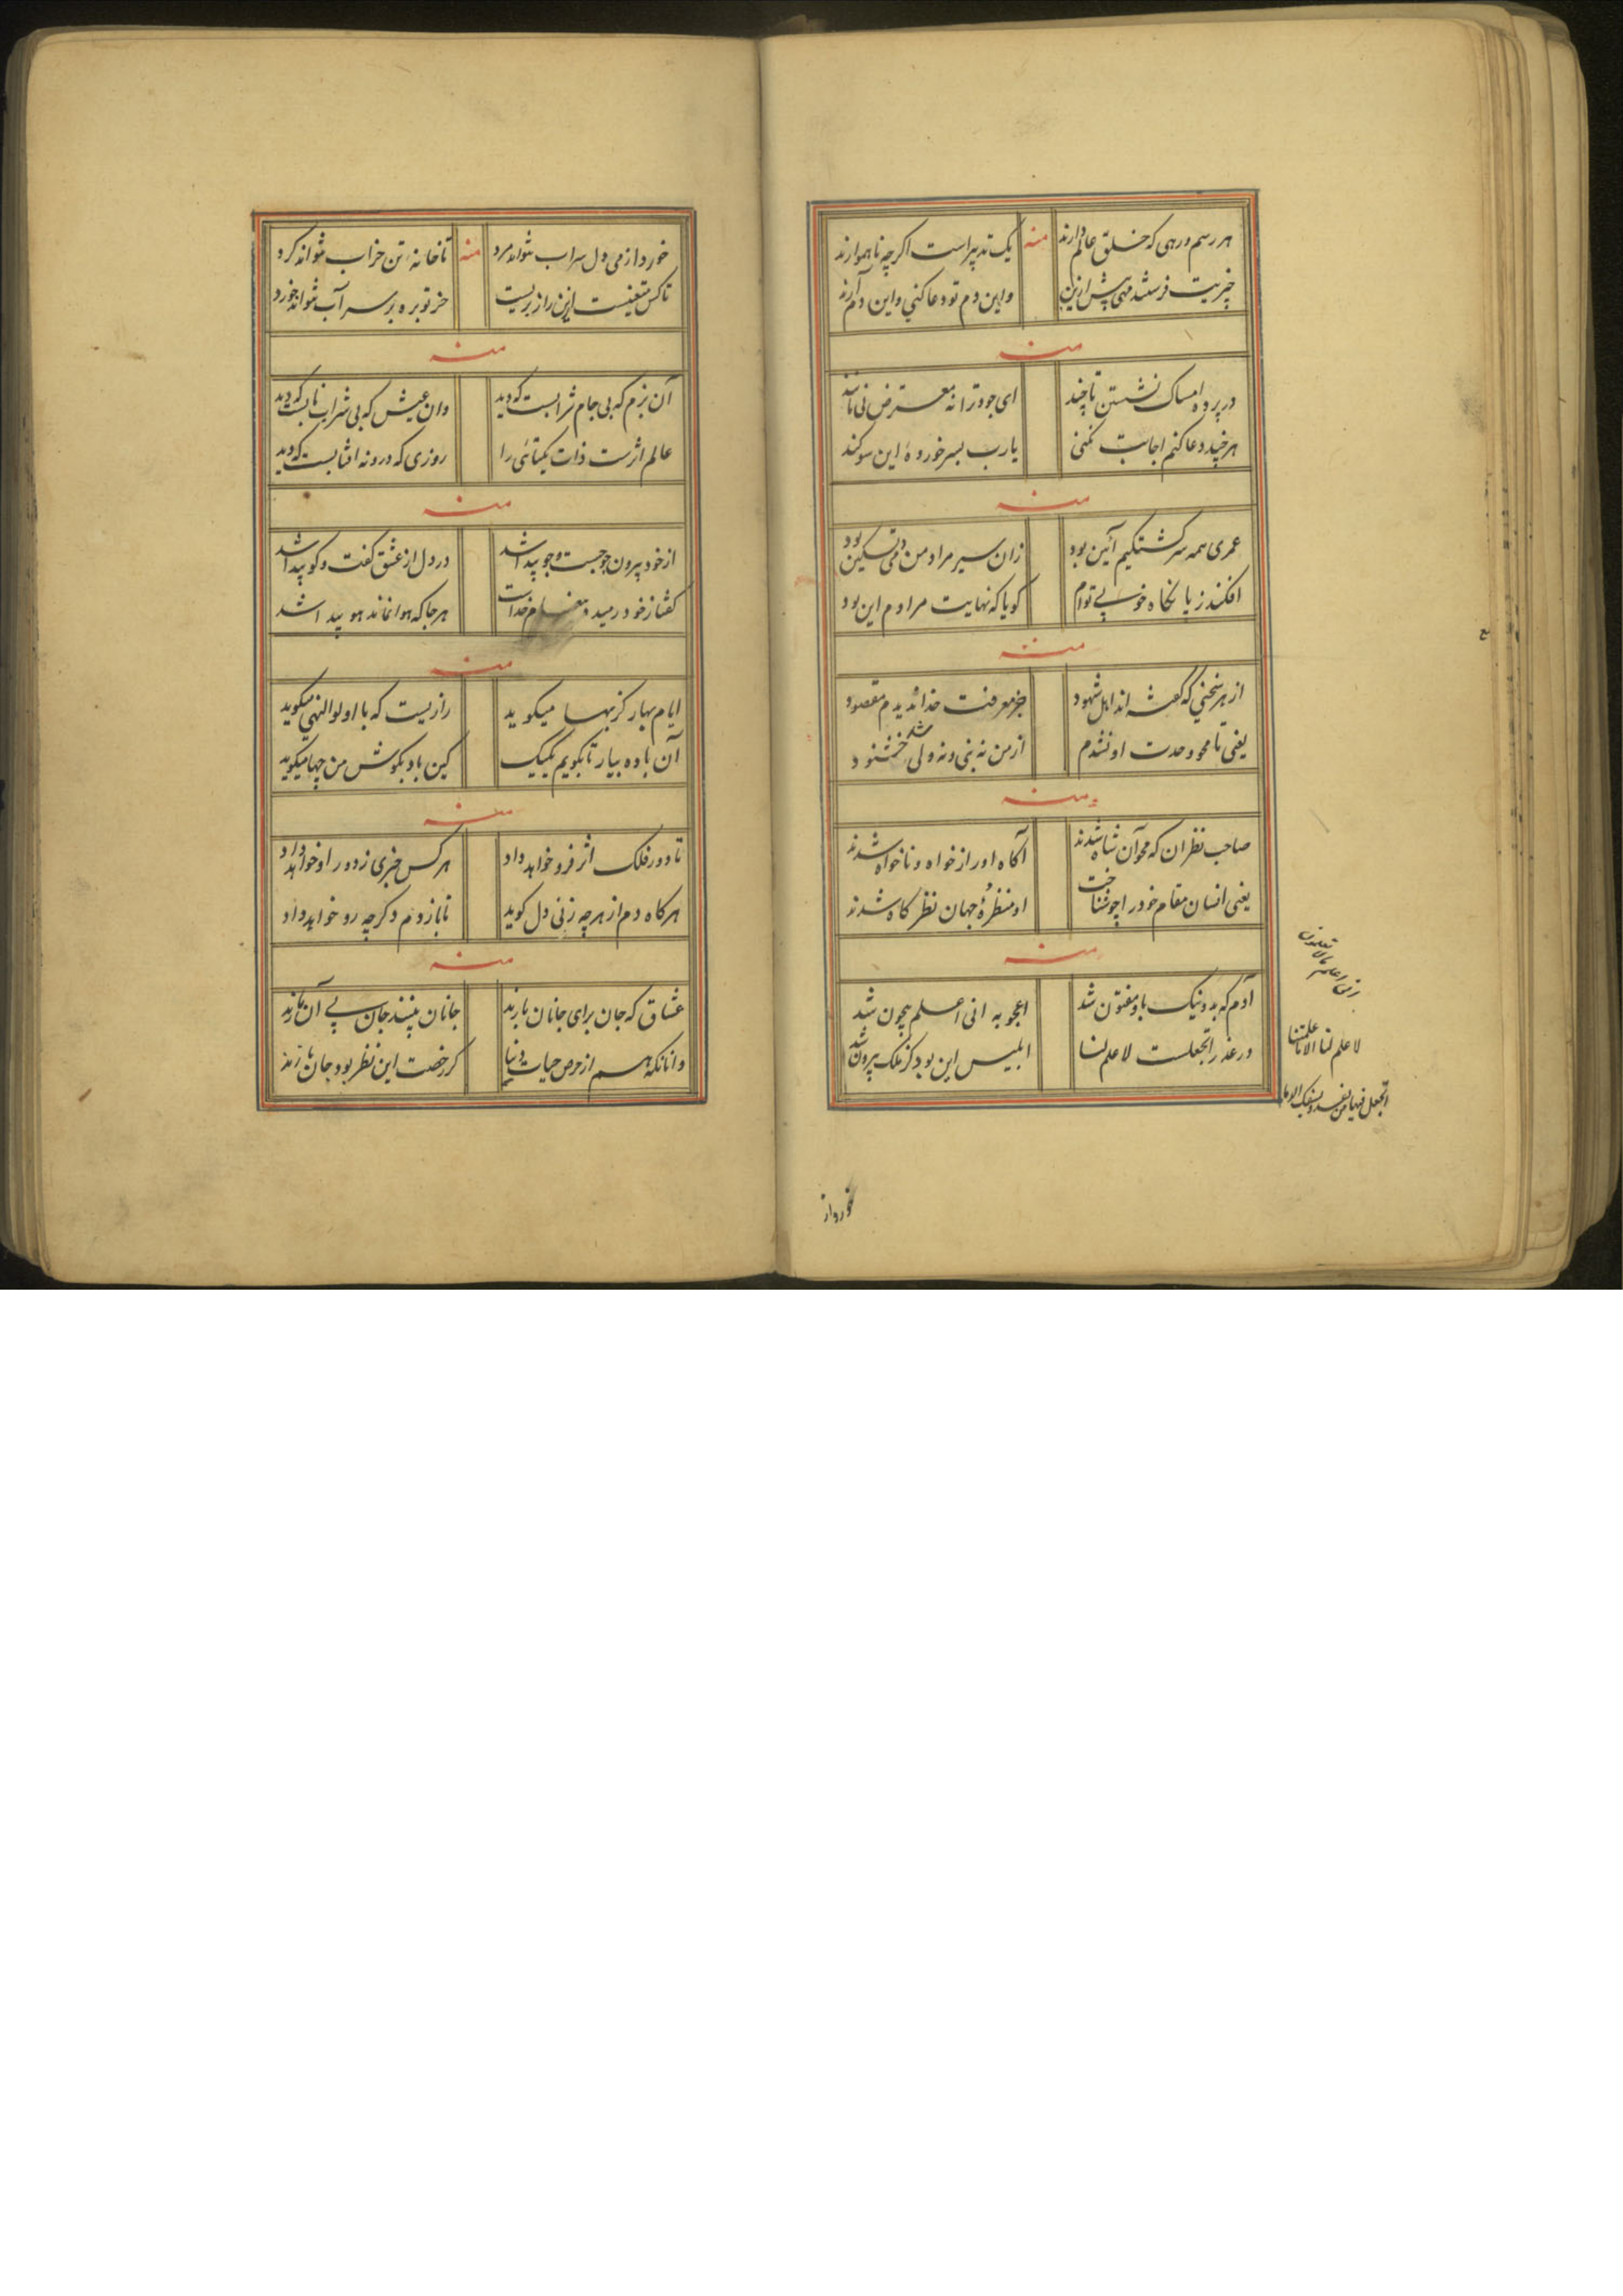 هر رسم و رهی که خلق عالم دارند منه یک تدبیر است اگرچه ناهموارند
چیزیت فرستند مهی پیش ازین واین دم تو دعا کنی و این دم آرند
منه
در پرده امساک نشستن تا چند ای جود ترا نه معترض نی مانند
هرچند دعا کنم اجابت نکنی یارب بسر خوردهٔ این سوکند
منه
عمری همه سرکشتکیم آئین بود زان سیر مراد من دمی تسکین بود
افکند ز پا نکاه خوبی توام کویا که نهایت مرادم این بود
منه
از هر سخنی که کفته اند اهل شهود جز معرفت خدا ندیدم مقصود
یعنی تا محو وحدت او نشدم از من نه نبی و نه ولی شد خشنود
منه
صاحب نظران که محو آن شاه شدند آکاه او را از خواه و ناخواه شدند
یعنی انسان مقام خود را چو شناخت او منظرهٔ جهان نظر کاه شدند
منه
آدم که بد و نیک باو مفتون شد اعجوبه انی اعلم بیچون شد
در عذر اتجعلست لا علم لنا ابلیس این بود کز ملک بیرون شد
انی اعلم ما لا تعلمون
لا علم لنا الا ما علمتنا
اتجعل فیها من یفسد و یسفک الدما
خورد از
خورد از می دل سراب نتواند مرد منه تا خانه تن خراب نتواند کرد
تا کس متعینست این راز بریست خر توبره بر سر آب نتواند خورد
منه
آن بزم که بی جام شرابست که دید وان عیش که بی شراب نابست که دید
عالم اثرست ذات یکتائی را روزی که درو نه آفتابست که دید
منه
از خود بیرون چو جست و جو پیدا شد در دل از عشق کفت و کو پیدا شد
کفتا ز خود رسید مقام خداست هر جا که هوا نماند هو پیدا شد
منه
ایام بهار کز بها میکوید رازیست که با اولوالنهی میکوید
آن باده بیار تا بکویم یکیک کین باد بکوش من چها میکوید
منه
تا دور فلک اثر فرو خواهد داد هر کس خبری ز دور او خواهد داد
هر کاه دم از هرچه زنی دل کوید تا باز دم دکر چه رو خواهد داد
منه
عشاق که جان برای جانان بازند جانان بینند جان پی آن بازند
وانانکه هم از حرص حیات دنیا کر رخصت این نظر بود جان بازند